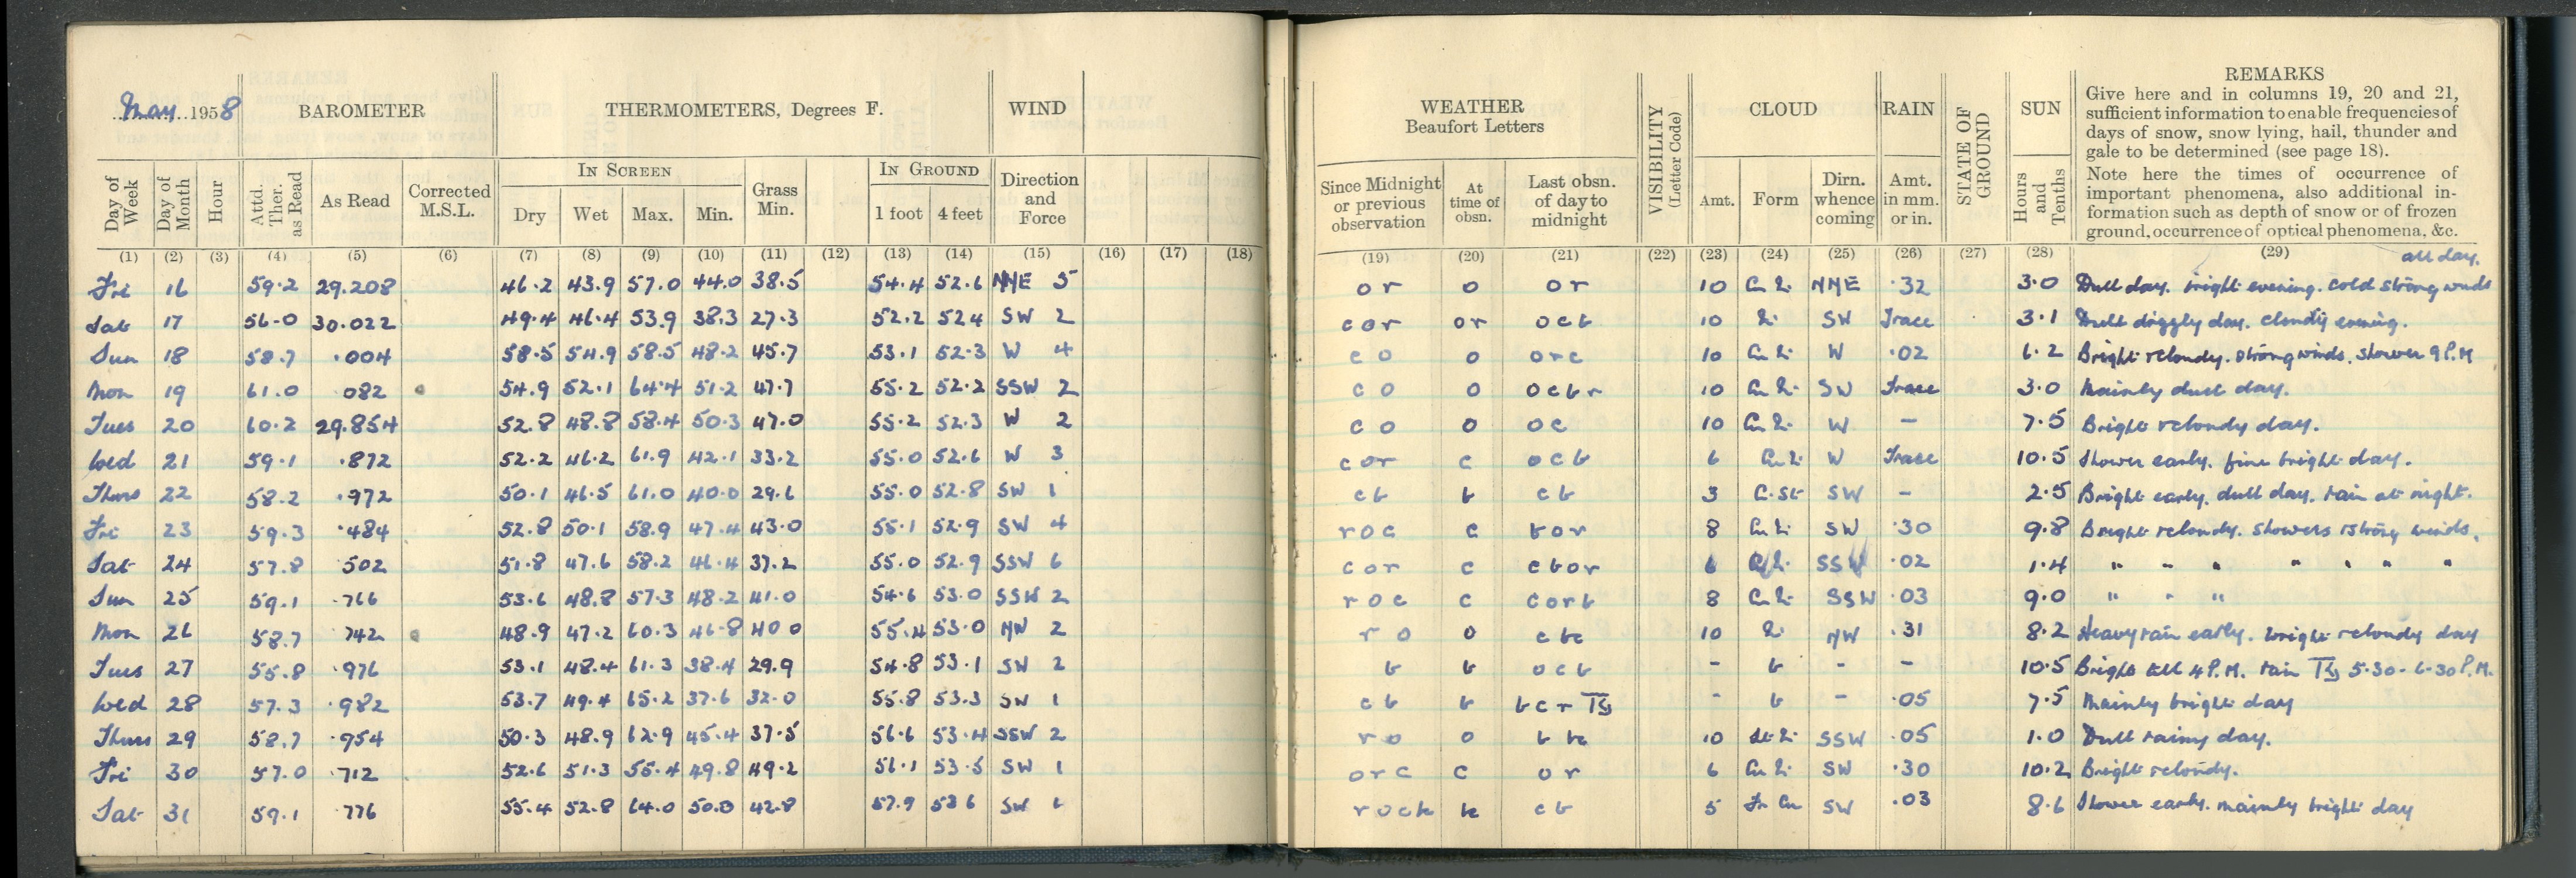 May 1958 BAROMETER THERMOMETERS, Degrees F. WIND
Day of Week Day of Month Hour Attd. Ther. as Read As Read Corrected M.S.L. IN SCREEN Dry Wet Max. Min. Grass Min. IN GROUND 1 foot 4 feet Direction and Force
(1) (2) (3) (4) (5) (6) (7) (8) (9) (10) (11) (12) (13) (14) (15) (16) (17) (18)
Fri 16 59.2 29.208 46.2 43.9 57.0 44.0 38.5 54.4 52.6 NNE 5
Sat 17 56.0 30.022 49.4 46.4 53.9 38.3 27.3 52.2 524 SW 2
Sun 18 58.7 .004 58.5 54.9 58.5 48.2 45.7 53.1 52.3 W 4
Mon 19 61.0 082 54.9 52.1 64.4 51.2 47.7 55.2 52.2 SSW 2
Tues 20 60.2 29.854 52.8 48.8 58.4 50.3 47.0 55.2 52.3 W 2
Wed 21 59.1 .872 52.2 46.2 61.9 42.1 33.2 55.0 52.6 W 3
Thurs 22 58.2 .972 50.1 46.5 61.0 40.0 29.6 55.0 52.8 SW 1
Fri 23 59.3 .484 52.8 50.1 58.9 47.4 43.0 55.1 52.9 SW 4
Sat 24 57.8 502 51.8 47.6 58.2 46.4 37.2 55.0 52.9 SSW 6
Sun 25 59.1 .766 53.6 48.8 57.3 48.2 41.0 54.6 53.0 SSW 2
Mon 26 58.7 742 48.9 47.2 60.3 46.8 40 0 55.4 53.0 NW 2
Tues 27 55.8 .976 53.1 48.4 61.3 38.4 29.9 54.8 53.1 SW 2
Wed 28 57.3 .982 53.7 49.4 65.2 37.6 32.0 55.8 53.3 SW 1
Thurs 29 58.7 .954 50.3 48.9 62.9 45.4 37.5 56.6 53.4 SSW 2
Fri 30 57.0 .712 52.6 51.3 55.4 49.8 49.2 56.1 53.5 SW 1
Sat 31 59.1 .776 55.4 52.8 64.0 50.0 42.8 57.9 53 6 SW 6
WEATHER Beaufort Letters VISIBILITY (Letter Code) CLOUD RAIN STATE OF GROUND SUN REMARKS
Give here and in columns 19, 20 and 21,
sufficient information to enable frequencies of
days of snow, snow lying, hail, thunder and
gale to be determined (see page 18).
Note here the times of occurrence of
important phenomena, also additional in-
formation such as depth of snow or of frozen
ground, occurrence of optical phenomena, &c.
Since Midnight or previous observation At time of obsn. Last obsn. of day to midnight Amt. Form Dirn. whence coming Amt. in mm. or in. Hours and Tenths
(19) (20) (21) (22) (23) (24) (25) (26) (27) (28) (29)
all day.
or o or 10 NNE .32 3.0 Dull day. bright evening. cold strong winds
cor or ocb 10 SW Trace 3.1 Dull day. cloudy evening.
co o orc 10 W .02 6.2 Bright & cloudy. strong winds. shower 9 P.M
co o ocbr 10 SW Trace 3.0 Mainly dull day.
co o oc 10 W - 7.5 Bright & cloudy day.
cor c ocb 6 W Trace 10.5 Shower early. fine bright day.
cb b cb 3 SW - 2.5 Bright early. dull day. rain at night.
roc c bor 8 SW .30 9.8 Bright & cloudy. showers & strong winds.
cor c cbor 6 SSW .02 1.4 " " " " " " "
roc c corb 8 SSW .03 9.0 " " "
ro o cbc 10 NW .31 8.2 Heavy rain early. bright & cloudy day
b b ocb - b - - 10.5 Bright till 4 P.M. rain 5.30 - 6.30 P.M.
cb b bcr - b - .05 7.5 Mainly bright day
ro o 10 SSW .05 1.0 Dull rainy day.
orc c or 6 SW .30 10.2 Bright & cloudy.
cb 5 Fr Cu SW .03 8.6 Shower early. mainly bright day